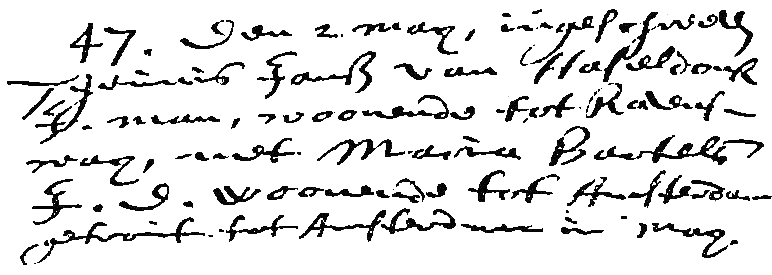 47. Den 2 may, ingeschreven
Theunis Janß van Haseldonk
J. man, woonende tot Ravens-
way, met Maria Bartels
J. D. woonende tot Amsterdam
getrout tot Amsterdam in may.